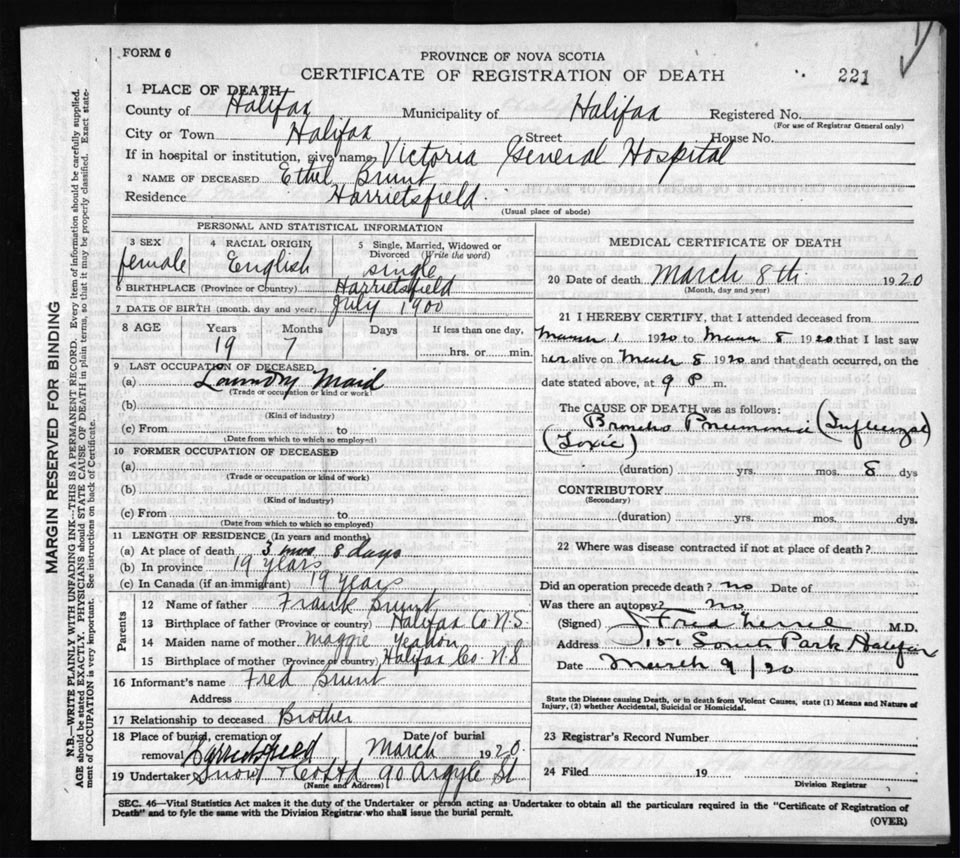 FORM 6
PROVINCE OF NOVA SCOTIA
CERTIFICATE OF REGISTRATION OF DEATH
221
1 PLACE OF DEATH
County of Halifax Municipality of Halifax Registered No.
(For use of Registrar General only)
City or Town Halifax Street House No.
If in hospital or institution, give name Victoria General Hospital
2 NAME OF DECEASED Ethel Brunt
Residence Harrietsfield.
(Usual place of abode)
PERSONAL AND STATISTICAL INFORMATION
3 SEX 4 RACIAL ORIGIN 5 Single, Married, Widowed or Divorced (Write the word)
female English single
6 BIRTHPLACE (Province or Country) Harrietsfield
7 DATE OF BIRTH (month, day and year) July 1900
8 AGE Years Months Days If less than one day,
19 7 hrs. or min.
9 LAST OCCUPATION OF DECEASED
(a) Laundry Maid
(Trade or occupation or kind of work)
(b)
(Kind of industry)
(c) From to
(Date from which to which so employed)
10 FORMER OCCUPATION OF DECEASED
(a)
(Trade or occupation or kind of work)
(b)
(Kind of industry)
(c) From to
(Date from which to which so employed)
11 LENGTH OF RESIDENCE (In years and months)
(a) At place of death 3 mos 8 days
(b) In province 19 years
(c) In Canada (if an immigrant) 19 years
Parents
12 Name of father Frank Brunt
13 Birthplace of father (Province or country) Halifax Co. N.S
14 Maiden name of mother Maggie Yeadon
15 Birthplace of mother (Province or country) Halifax Co. N.S
16 Informant's name Fred Brunt
Address
17 Relationship to deceased Brother
18 Place of burial, cremation or Date of burial
removal March 1920.
19 Undertaker Snow & Co Ltd 90 Argyle St
(Name and Address)
MEDICAL CERTIFICATE OF DEATH
20 Date of death March 8th 1920
(Month, day and year)
21 I HEREBY CERTIFY, that I attended deceased from
March 1 1920 to March 8 1920 that I last saw
her alive on March 8 1920 and that death occurred, on the
date stated above, at 9 P m.
The CAUSE OF DEATH was as follows:
Broncho Pneumonia (Influenzal)
(Toxic)
(duration) yrs. mos. 8 dys
CONTRIBUTORY
(Secondary)
(duration) yrs. mos. dys.
22 Where was disease contracted if not at place of death?
Did an operation precede death? no Date of
Was there an autopsy? no
(Signed) Fred M.D.
Address 151 South Park Halifax
Date March 9/20
State the Disease causing Death, or in death from Violent Causes, state (1) Means and Nature of
Injury, (2) whether Accidental, Suicidal or Homicidal.
23 Registrar's Record Number
24 Filed 19
Division Registrar
SEC. 46—Vital Statistics Act makes it the duty of the Undertaker or person acting as Undertaker to obtain all the particulars required in the "Certificate of Registration of
Death" and to fyle the same with the Division Registrar who shall issue the burial permit.
(OVER)
MARGIN RESERVED FOR BINDING
N.B.—WRITE PLAINLY WITH UNFADING INK—THIS IS A PERMANENT RECORD. Every item of information should be carefully supplied.
AGE should be stated EXACTLY. PHYSICIANS should STATE CAUSE OF DEATH in plain terms, so that it may be properly classified. Exact state-
ment of OCCUPATION is very important. See instructions on back of Certificate.